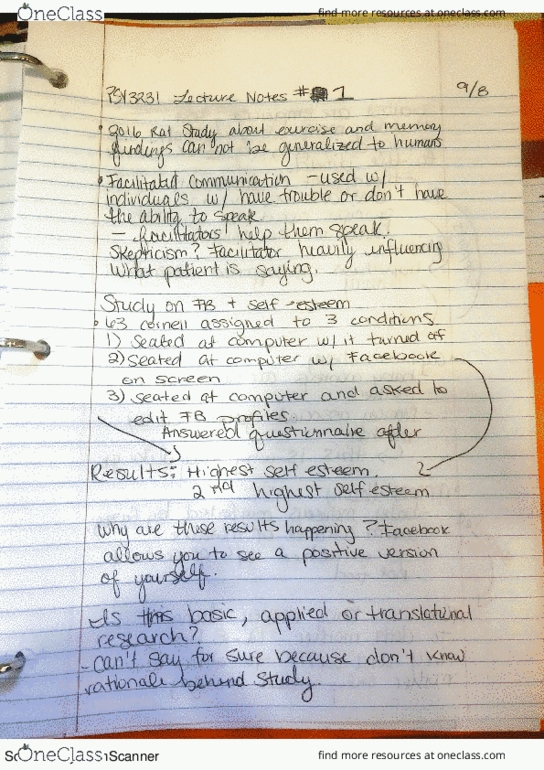 OneClass find more resources at oneclass.com
PSY3231 Lecture Notes # 1 9/8
• 2016 Rat Study about exercise and memory
findings can not be generalized to humans
• Facilitated Communication - used w/
individuals w/ have trouble or don't have
the ability to speak
- facilitators help them speak.
Skepticism? Facilitator heavily influencing
what patient is saying.
Study on FB + self-esteem
• 63 cornell assigned to 3 conditions
1) seated at computer w/ it turned off
2) seated at computer w/ Facebook
on screen
3) seated at computer and asked to
edit FB profiles.
Answered questionnaire after
Results: Highest self esteem. 2
2nd highest self esteem
Why are these results happening? Facebook
allows you to see a positive version
of yourself.
-Is this basic, applied or translational
research?
- Can't say for sure because don't know
rationale behind study.
OneClass Scanner find more resources at oneclass.com